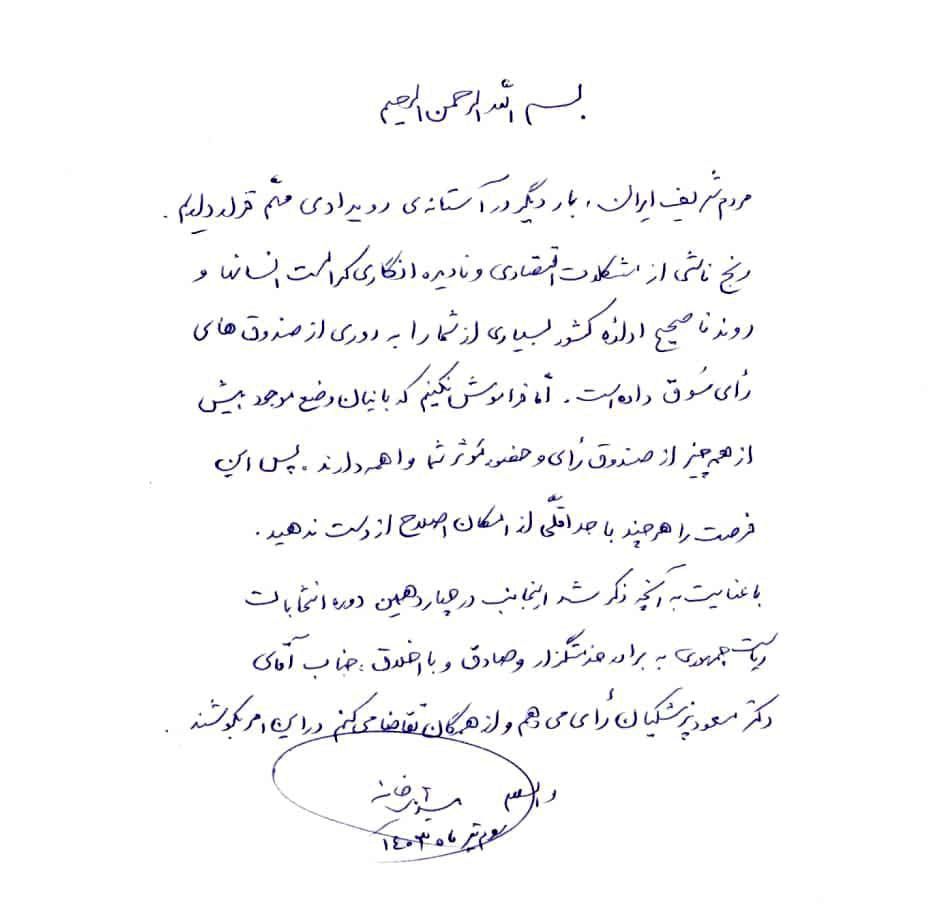 بسم الله الرحمن الرحیم
مردم شریف ایران، بار دیگر در آستانه‌ی رویدادی مهّم قرار داریم.
رنج ناشی از مشکلات اقتصادی و نادیده انگاری کرامت انسانها و
روند ناصحیح اداره کشور بسیاری از شما را به دوری از صندوق های
رأی سُوق داده است. امّا فراموش نکنیم که بانیان وضع موجود بیش
از همه چیز از صندوق رأی و حضور مؤثر شما واهمه دارند. پس این
فرصت را هر چند با حداقلّی از امکان اصلاح از دست ندهید.
با عنایت به آنچه ذکر شد اینجانب در چهاردهمین دوره انتخابات
ریاست جمهوری به برادر خدمتگزار و صادق و با اخلاق، جناب آقای
دکتر مسعود پزشکیان رأی می دهم و از همگان تقاضا می کنم در این امر بکوشند.
والسلام
تیر ماه ۱۴۰۳